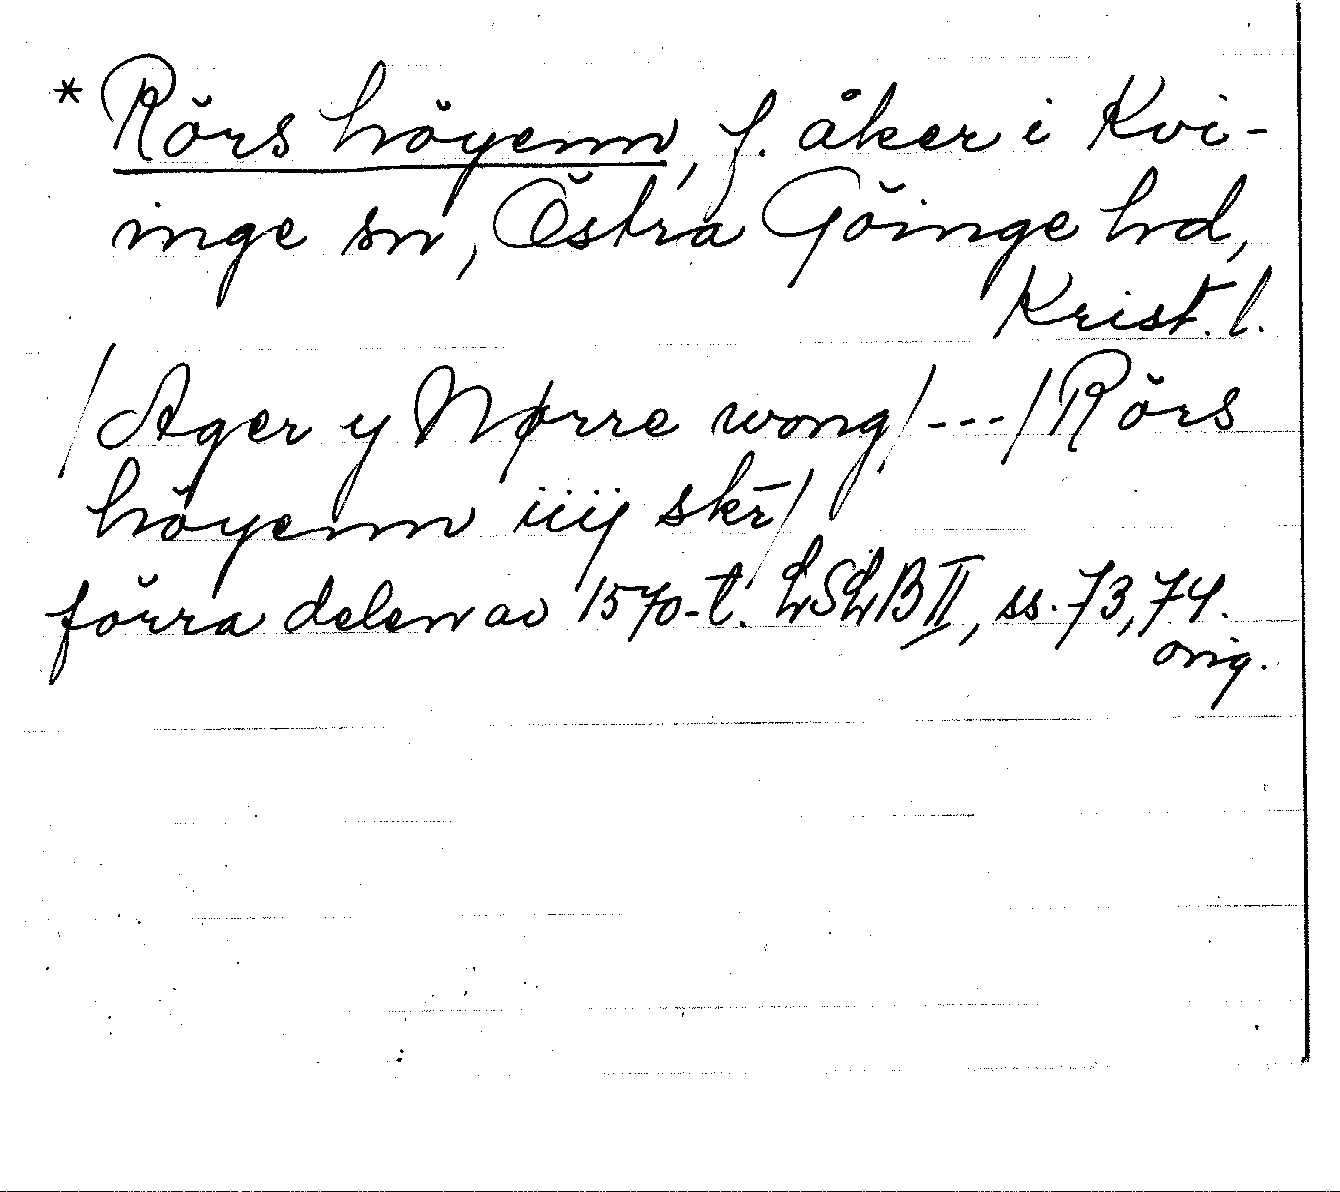 * Rörs höyenn, f. åker i Kvi-
inge sn, Östra Göinge hd,
Krist. l.
/Ager y Nørre wong/---/Rörs
höyenn iiij skr̄/
förra delen av 1570-t. LSLB II, ss. 73, 74.
orig.